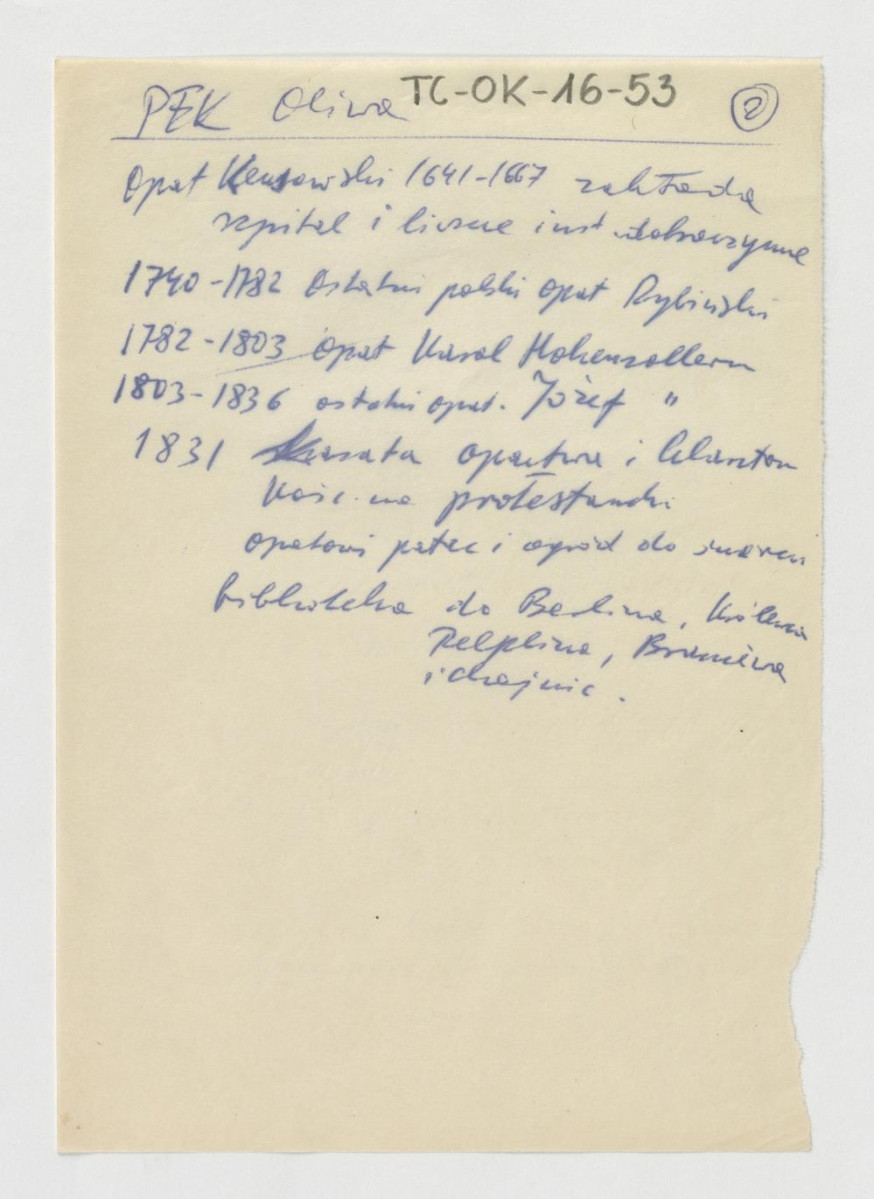 PEK Oliwa TC-OK-16-53 2
Opat Kensowski 1641-1667 zakłada
szpital i liczne inst. dobroczynne
1740-1782 Ostatni polski opat Rybiński
1782-1803 opat Karol Hohenzollern
1803-1836 ostatni opat. Józef "
1831 Kasata opactwa i klasztoru
Kośc. na protestancki
opatowi pałac i ogród do
biblioteka do Berlina, Królewca
Pelplina, Braniewa
i Chojnic.